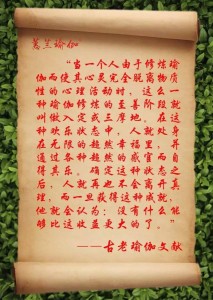 蕙兰瑜伽
“当一个人由于修炼瑜
伽而使其心灵完全脱离物质
性的心理活动时，这么一
种瑜伽修炼的至善阶段就
叫做入定或三摩地。在这
种欢乐状态中，人就处身
在无限的超然幸福里，并
通过各种超然的感官而自
得其乐。确定这种状态之
后，人就再也不会离开真
理，而一旦获得这种成就，
他就会认为：没有什么能
够比这收益更大的了。”
——古老瑜伽文献